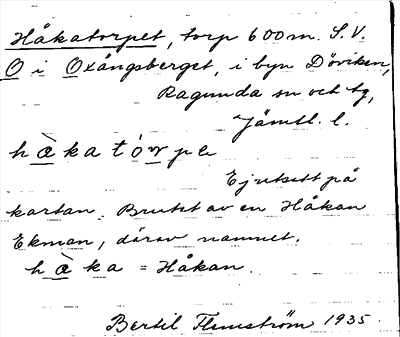 Håkatorpet, torp 600 m. S.V.
O i Oxängsberget, i byn Döviken,
Ragunda sn och tg,
Jämtl. l.
hàkatórpe
Ej utsatt på
kartan. Brutet av en Håkan
Ekman, därav namnet.
hàka = Håkan.
Bertil Flemström 1935.